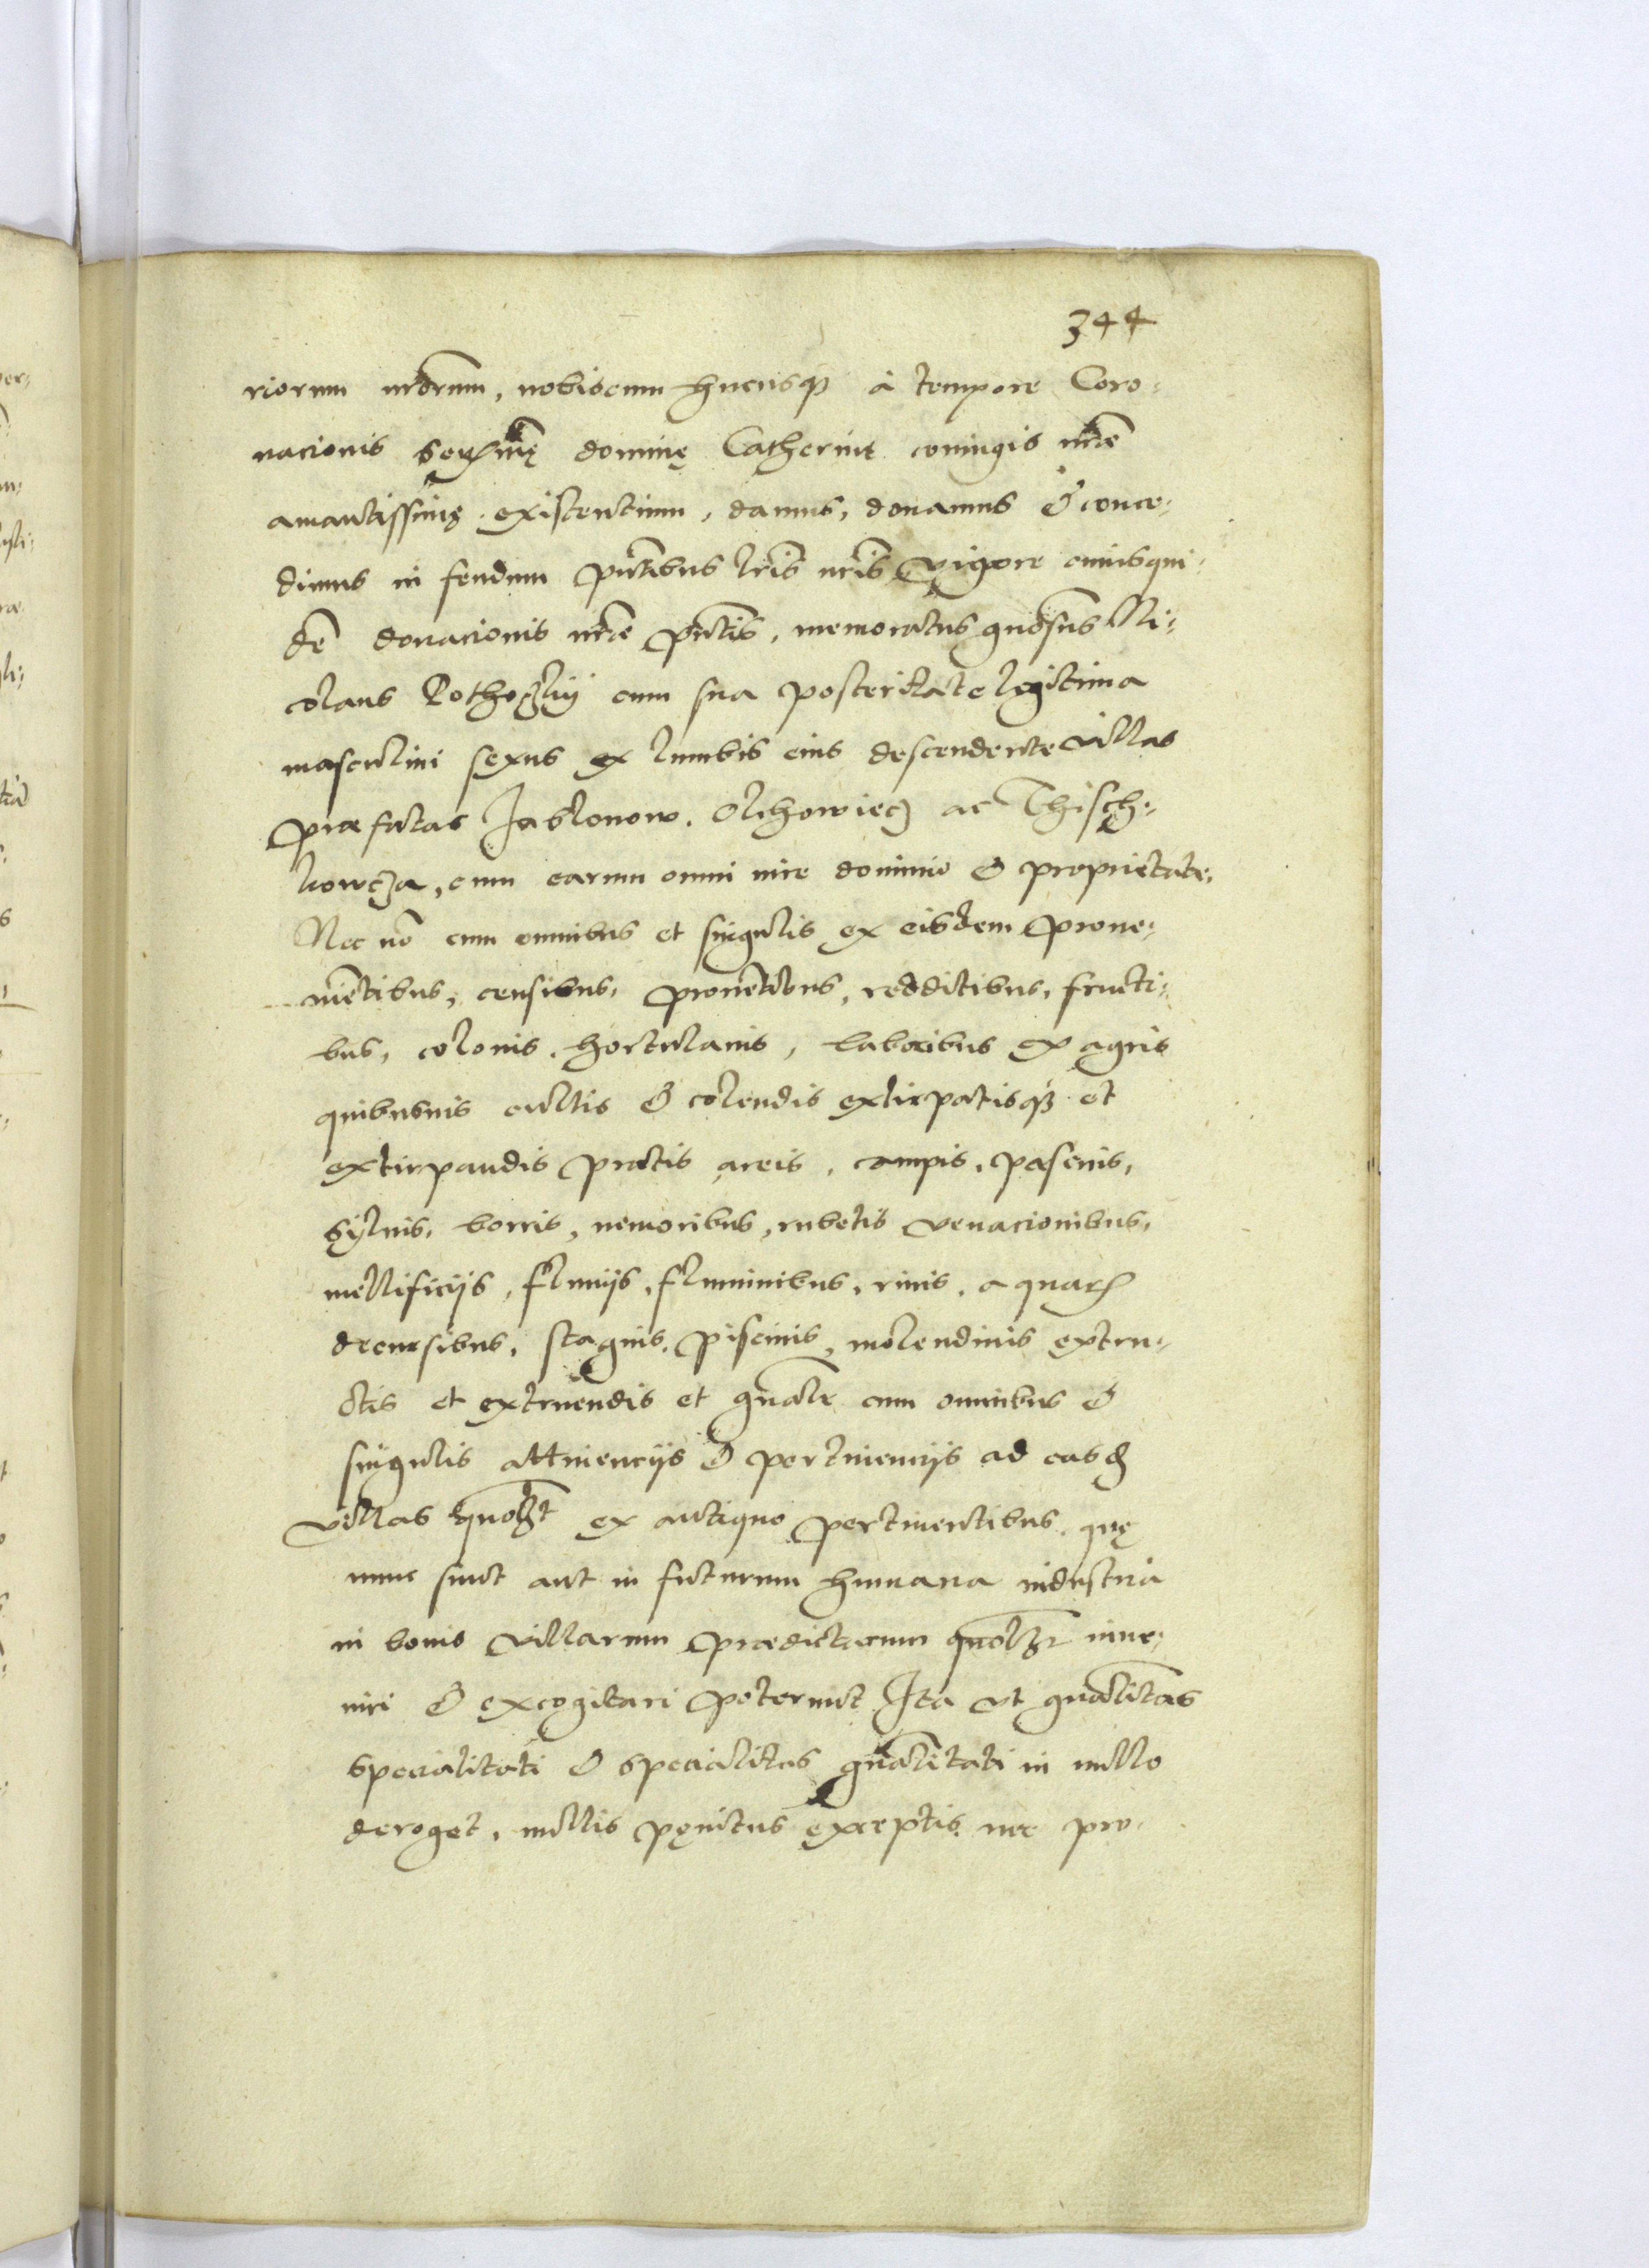 344
riorum nr̃orum, nobiscum hucusqꝫ à tempore Coro-
nacionis Seren̄mę dominę Catherinę coniugis nr̃æ
amantissimę existentium, damus, donamus & conce-
dimus in feudum pñtibus lr̃is nr̃is Vigore cuiusqui-
dẽ donacionis nr̃æ pñtis, memoratus gñosus Ni-
colaus cum sua posteritate legitima
masculini sexus ex lumbis eius descendente villas
præfatas Jablonow. Olchowiecz ac Thisch-
kowcza, cum earum omni iure dominio & proprietate,
Nec nõ cum omnibus et singulis ex eisdem proue-
niẽtibus, censibus, prouẽtibus, redditibus, fructi-
bus, colonis, hortulanis, laboribus ex agris
quibusuis cultis & colendis extirpatisqꝫ et
extirpandis pratis, areis, campis, pascuis,
syluis, borris, nemoribus, rubetis venacionibus,
mellificijs, fluuijs, fluminibus, riuis, aquarꝝ
decursibus, stagnis, piscinis, molendinis extru-
ctis et extruendis et gñale cum omnibus &
singulis attinencijs & pertinencijs ad easd̃
villas quolꝫt ex antiquo pertinentibus, quę
nunc sunt aut in futurum humana industria
in bonis villarum prædictarum quolꝫt inue-
niri & excogitari poterunt Ita vt gñalitas
specialitati & specialitas gñalitati in nullo
deroget, nullis pęnitus exceptis nec pro-